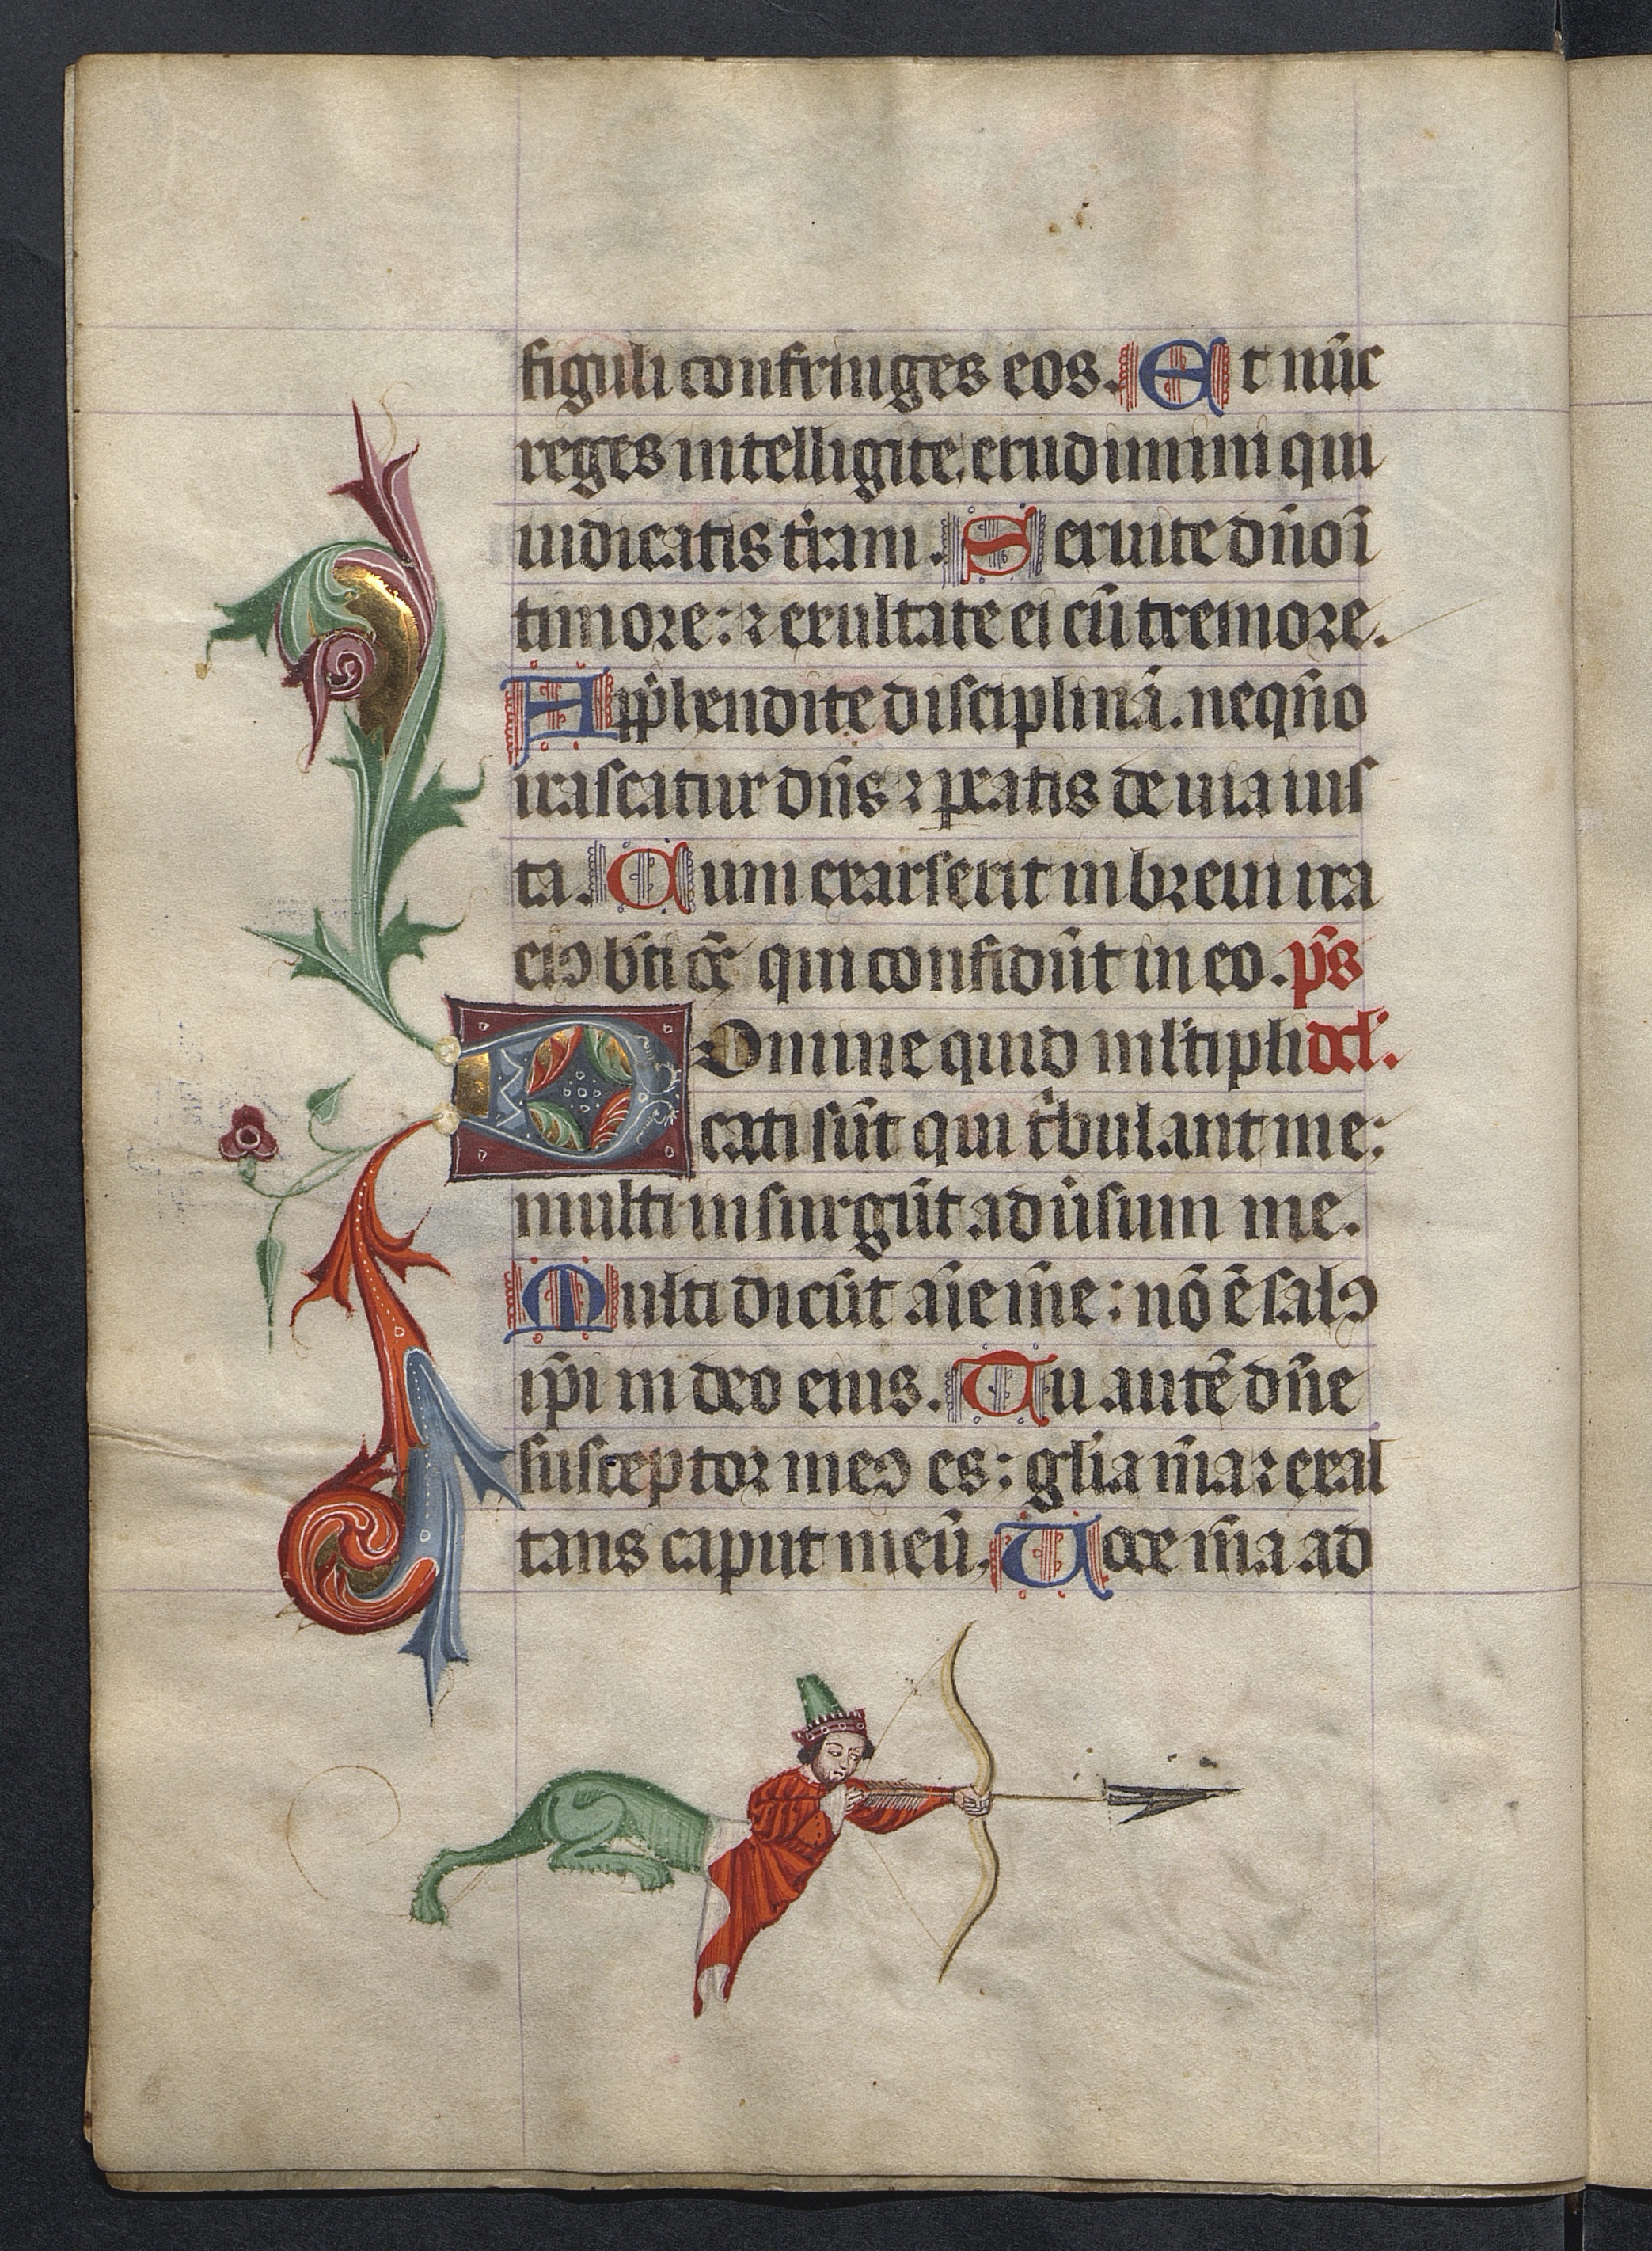 figuli confringes eos. Et nūc
reges intelligite. erudimini qui
iudicatis t̄ram. Seruite dn̄o ī
timore: ⁊ exultate ei cū tremore.
App̄hendite disciplinā. neqn̄o
irascatur dn̄s ⁊ ꝑeatis de uia ius
ta. Cum exarserit in breui ira
eiꝰ bt̄i oēs qui confidūt in eo. ps̄
Domine quid ml̄tipli dd̄.
cati sūt qui tͥbulant me:
multi insurgūt aduͥsum me.
Multi dicūt aīe mē: nō ē salꝰ
ip̄i in deo eius. Tu autē dn̄e
susceptor meꝰ es: glīa mā ⁊ exal
tans caput meū. Uoce mā ad